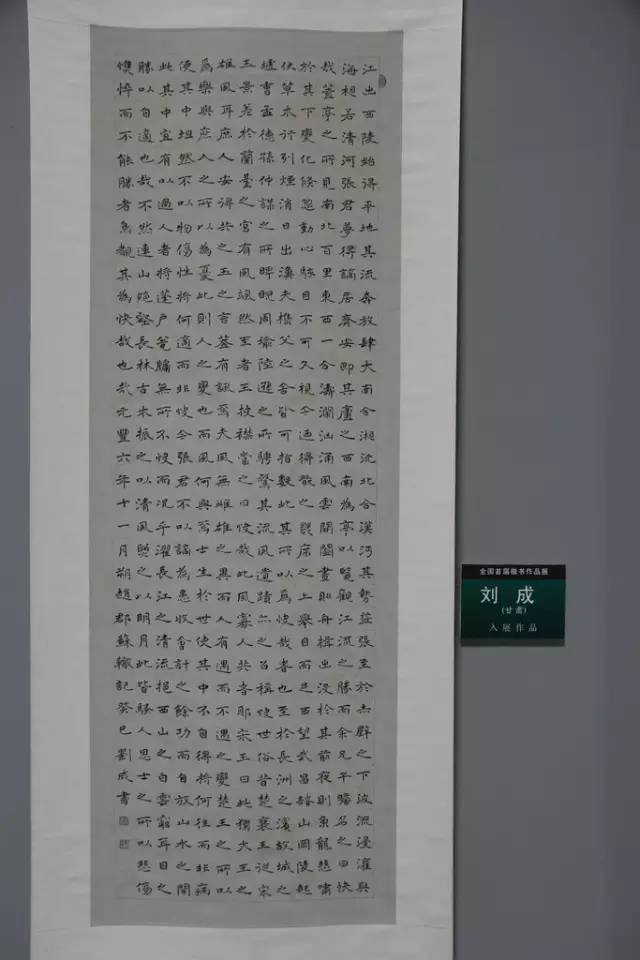 江出西陵始得平地其流奔放肆大南合湘沅北合漢沔其勢益張至於赤壁之下波流浸灌與
海相若清河張君夢得謫居齊安即其廬之西南為亭以覽觀江流之勝而余兄子瞻名之曰快
哉蓋亭之所見南北百里東西一合濤瀾洶涌風雲開闔晝則舟楫出沒於其前夜則魚龍悲嘯
於其下變化倏忽動心駭目不可久視今乃得翫之几席之上舉目而足西望武昌諸山岡陵起
伏草木行列煙消日出漁夫樵父之舍皆可指數此其所以為快哉者也至於長洲之濱故城之
墟曹孟德孫仲謀之所睥睨周瑜陸遜之所騁騖其流風遺蹟亦足以稱快世俗昔楚襄王從宋
玉景差於蘭臺之宮有風颯然至者王披襟當之曰快哉此風寡人共者耶宋玉曰此獨大王之
雄風耳庶人安得共之玉之言蓋有諷焉夫風無雌雄之異而人有遇不遇之變楚王之所以
為樂與庶人之所以為憂此則人之變也而風何與焉士生於世使其中不自得將何往而非病
使其中坦然不以物傷性將何適而非快今張君不以謫為患收會計之餘功而自放山水之間
此其中宜有以過人者將蓬戶甕牖無所不快而況乎濯長江之清流挹西山之白雲窮耳目之
勝以自適也哉不然連山絕壑長林古木振之以清風照之以明月此皆騷人思士之所以悲傷
憔悴而不能勝者烏覩其為快哉也哉元豐六年十一月朔趙郡蘇轍記癸巳劉成書
全国首届楷书作品展
刘成
(甘肃)
入展作品